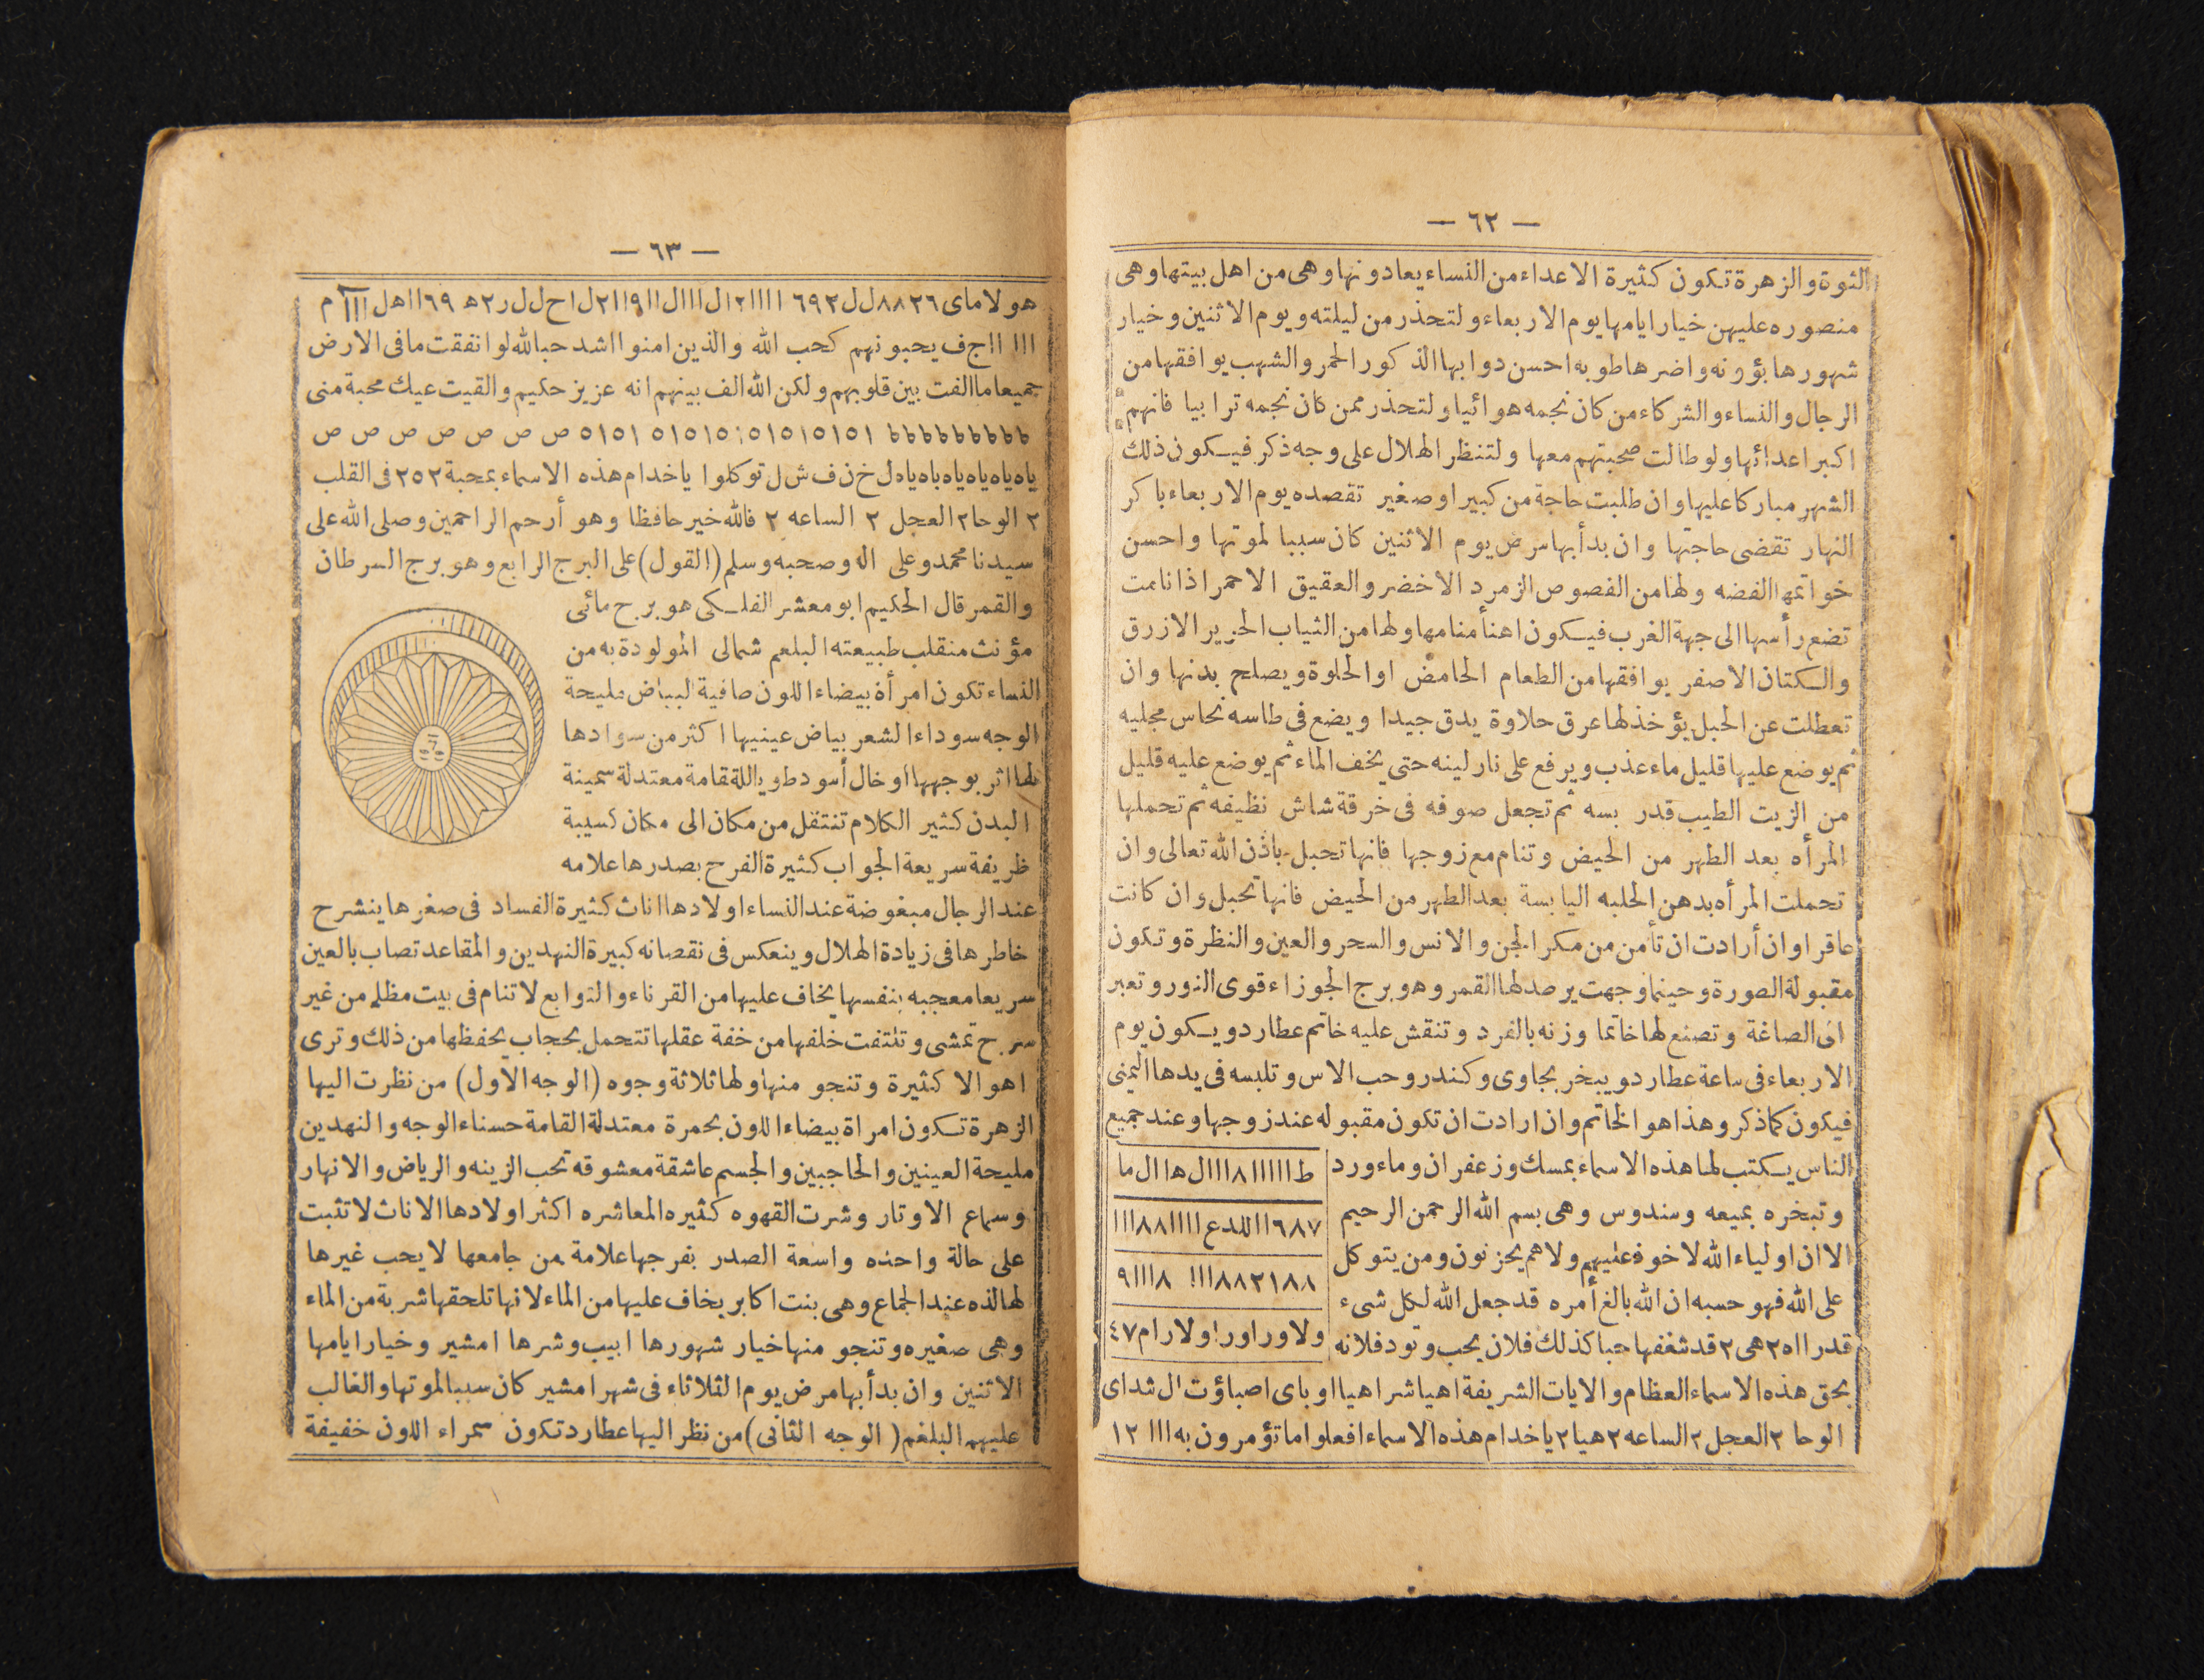 — ٦٢ —
الثوة والزهرة تكون كثيرة الاعداء من النساء يعادونها وهى من اهل بيتها وهى
منصوره عليهن خيار ايامها يوم الاربعاء ولتحذر من ليلته ويوم الاثنين وخيار
شهورها بؤونه واضرها طوبه احسن دوابها الذكور الحمر والشهب يوافقها من
الرجال والنساء والشركاء من كان نجمه هوائيا ولتحذر ممن كان نجمه ترابيا فانهم
اكبر اعدائها ولو طالت صحبتهم معها ولتنظر الهلال على وجه ذكر فيكون ذلك
الشهر مباركا عليها وان طلبت حاجة من كبير او صغير تقصده يوم الاربعاء باكر
النهار تقضى حاجتها وان بدأ بها مرض يوم الاثنين كان سببا لموتها واحسن
خواتمها الفضه ولها من الفصوص الزمرد الاخضر والعقيق الاحمر اذا نامت
تضع رأسها الى جهة الغرب فيكون اهنأ منامها ولها من الثياب الحرير الازرق
والكتان الاصفر يوافقها من الطعام الحامض او الحلوة ويصلح بدنها وان
تعطلت عن الحبل يؤخذ لها عرق حلاوة يدق جيدا ويضع فى طاسه نحاس مجليه
ثم يوضع عليها قليل ماء عذب ويرفع على نار لينه حتى يخف الماء ثم يوضع عليه قليل
من الزيت الطيب قدر بسه ثم تجعل صوفه فى خرقة شاش نظيفه ثم تحملها
المرأه بعد الطهر من الحيض وتنام مع زوجها فانها تحبل باذن الله تعالى وان
تحملت المرأه بدهن الحلبه اليابسة بعد الطهر من الحيض فانها تحبل وان كانت
عاقر اوان أرادت ان تأمن من مكر الجن والانس والسحر والعين والنظرة وتكون
مقبولة الصورة وحينما وجهت يرصد لها القمر وهو برج الجوزاء قوى النور وتعبر
الى الصاغة وتصنع لها خاتما وزنه بالفرد وتنقش عليه خاتم عطارد ويكون يوم
الاربعاء فى ساعة عطارد ويبخر بجاوى وكندر وحب الاس وتلبسه فى يدها اليمنى
فيكون كما ذكر وهذا هو الخاتم وان ارادت ان تكون مقبوله عند زوجها وعند جميع
الناس يكتب لها هذه الاسماء بمسك وزعفران وماء ورد
وتبخره بميعه وسندوس وهى بسم الله الرحمن الرحيم
الا ان اولياء الله لا خوف عليهم ولا هم يحزنون ومن يتوكل
على الله فهو حسبه ان الله بالغ أمره قد جعل الله لكل شىء
قدرا ااه ٢ هى ٢ قد شغفها حبا كذلك فلان يحب وتود فلانه
ط ااااا ٨ ااال هاال ما
٦٨٧االلدع اااا٨٨ااا
٨٨٢١٨٨ااا ٨ااا٩
ولاور اور اولا رام ٤٧
بحق هذه الاسماء العظام والايات الشريفة اهيا شراهيا اوباى اصباؤت ال شداى
الوحا ٢ العجل ٢ الساعه ٢ هيا ٢ ياخدام هذه الاسماء افعلوا ما تؤمرون به ااا ١٢
— ٦٣ —
ااا ااج ف يحبونهم كحب الله والذين امنوا اشد حبا لله لو انفقت مافى الارض
جميعا ما الفت بين قلوبهم ولكن الله الف بينهم انه عزيز حكيم والقيت عيك محبة منى
ياه ياه ياه ياه ياه ياه ل خ ن ف ش ل توكلوا ياخدام هذه الاسماء بمحبة ٢٥٢ فى القلب
٢ الوحا ٢ العجل ٢ الساعه ٢ فالله خير حافظا وهو أرحم الراحمين وصلى الله على
سيدنا محمد وعلى اله وصحبه وسلم (القول) على البرج الرابع وهو برج السرطان
والقمر قال الحكيم ابو معشر الفلكى هو برج مائى
مؤنث منقلب طبيعته البلغم شمالى المولودة به من
النساء تكون امرأة بيضاء اللون صافية البياض مليحة
الوجه سوداء الشعر بياض عينيها اكثر من سوادها
لها اثر بوجهها او خال أسود طويلة القامة معتدلة سمينة
البدن كثير الكلام تنتقل من مكان الى مكان كسيبة
ظريفة سريعة الجواب كثيرة الفرح بصدرها علامه
عند الرجال مبغوضة عند النساء اولادها اناث كثيرة الفساد فى صغرها ينشرح
خاطرها فى زيادة الهلال وينعكس فى نقصانه كبيرة النهدين والمقاعد تصاب بالعين
سريعا معجبه بنفسها يخاف عليها من القرناء والتوابع لا تنام فى بيت مظلم من غير
سرج تمشى وتلتفت خلفها من خفة عقلها تتحمل بحجاب يحفظها من ذلك وترى
اهوالا كثيرة وتنجو منها ولها ثلاثة وجوه (الوجه الاول) من نظرت اليها
الزهرة تكون امراة بيضاء اللون بحمرة معتدلة القامة حسناء الوجه والنهدين
مليحة العينين والحاجبين والجسم عاشقة معشوقه تحب الزينه والرياض والانهار
وسماع الاوتار وشرت القهوه كثيره المعاشره اكثر اولادها الاناث لا تثبت
على حالة واحده واسعة الصدر بفرجها علامة من جامعها لا يحب غيرها
لها لذه عند الجماع وهى بنت اكابر يخاف عليها من الماء لانها تلحقها شربة من الماء
وهى صغيره وتنجو منها خيار شهورها ابيب وشرها امشير وخيار ايامها
الاثنين وان بدأ بها مرض يوم الثلاثاء فى شهر امشير كان سببا لموتها والغالب
عليهم البلغم (الوجه الثانى) من نظر اليها عطارد تكون سمراء اللون خفيفة